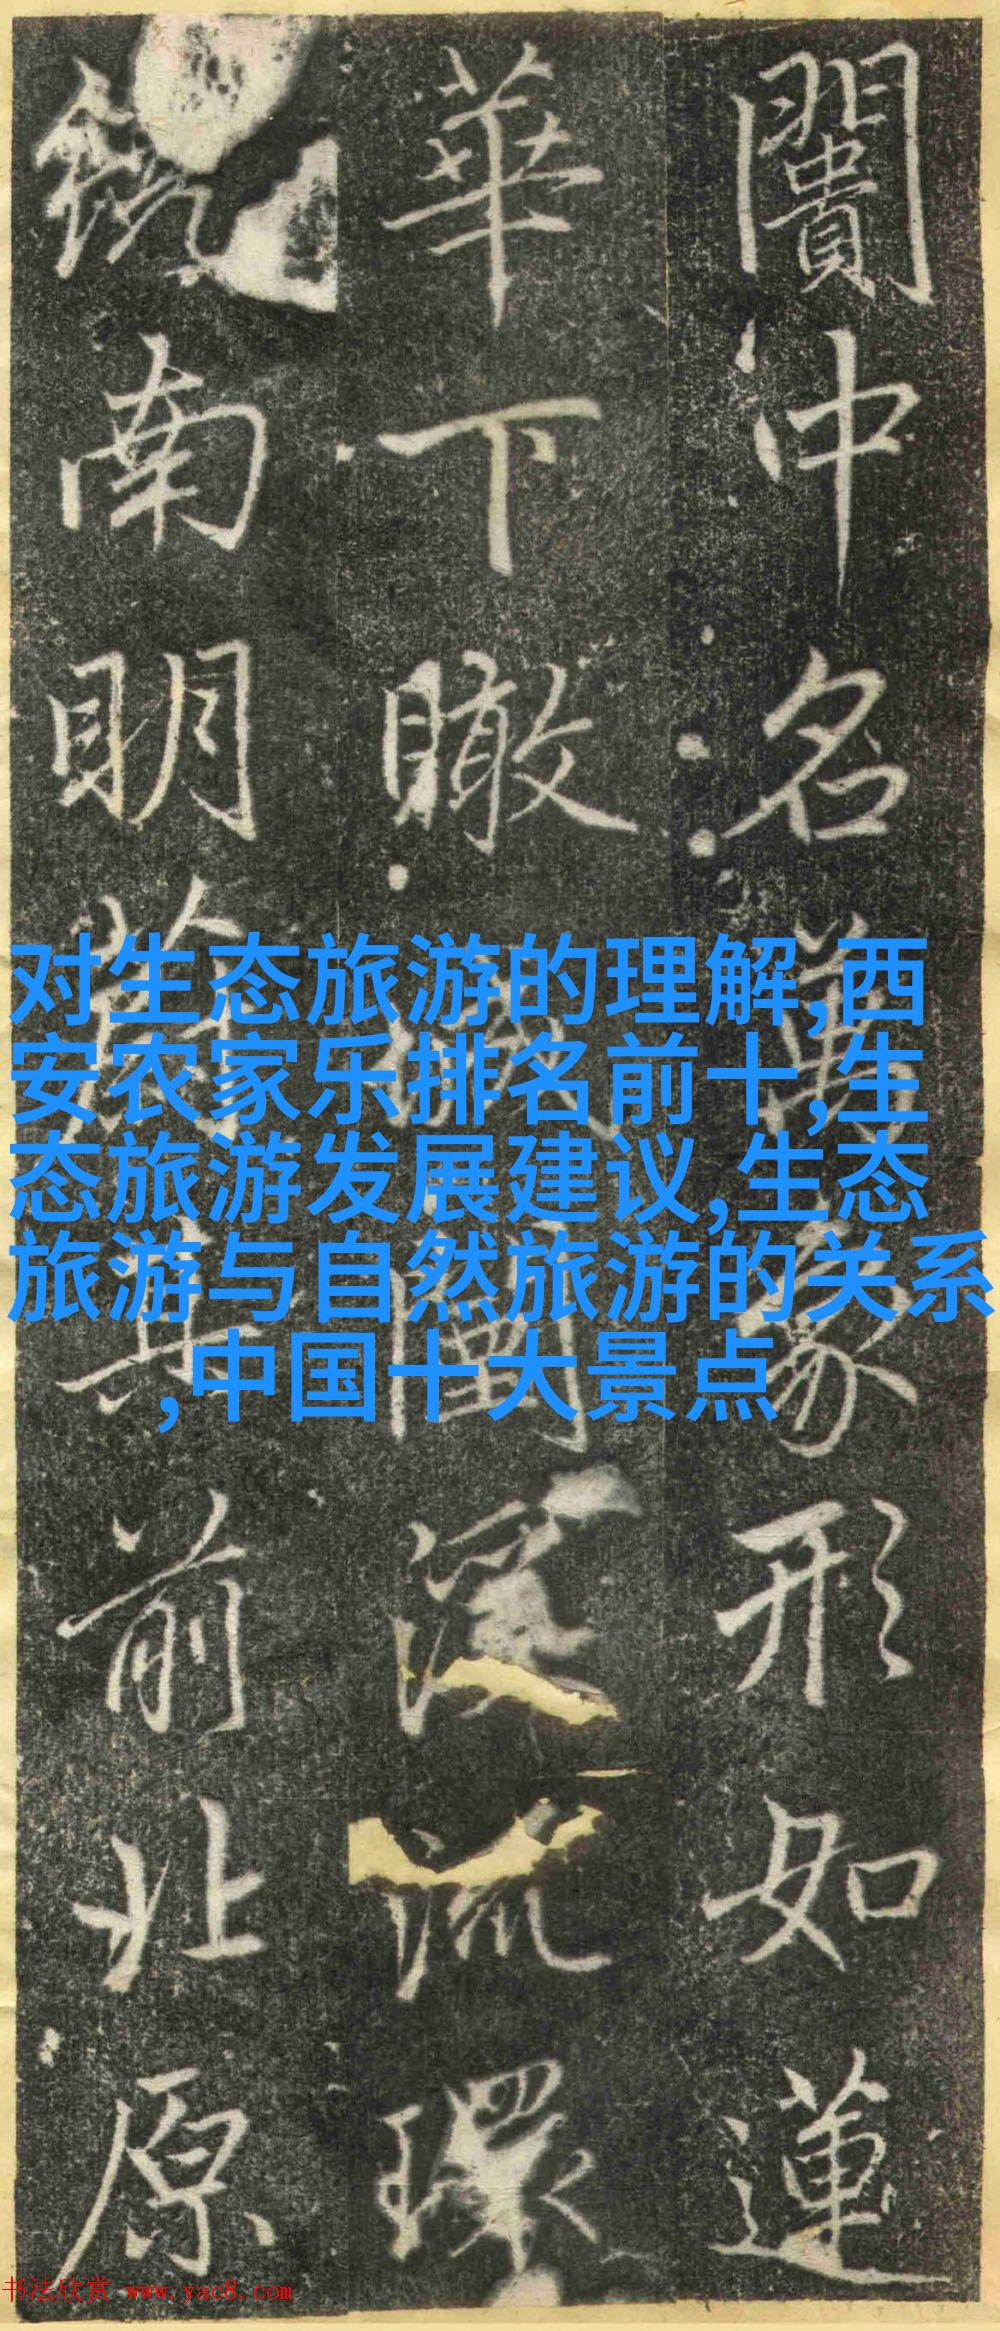 闠
名
象形如蓮
華下瞰
流環
南明
前北原
对生态旅游的理解,西
安农家乐排名前十,生
态旅游发展建议,生态
旅游与自然旅游的关系
,中国十大景点
书法欣赏 www.yac8.com